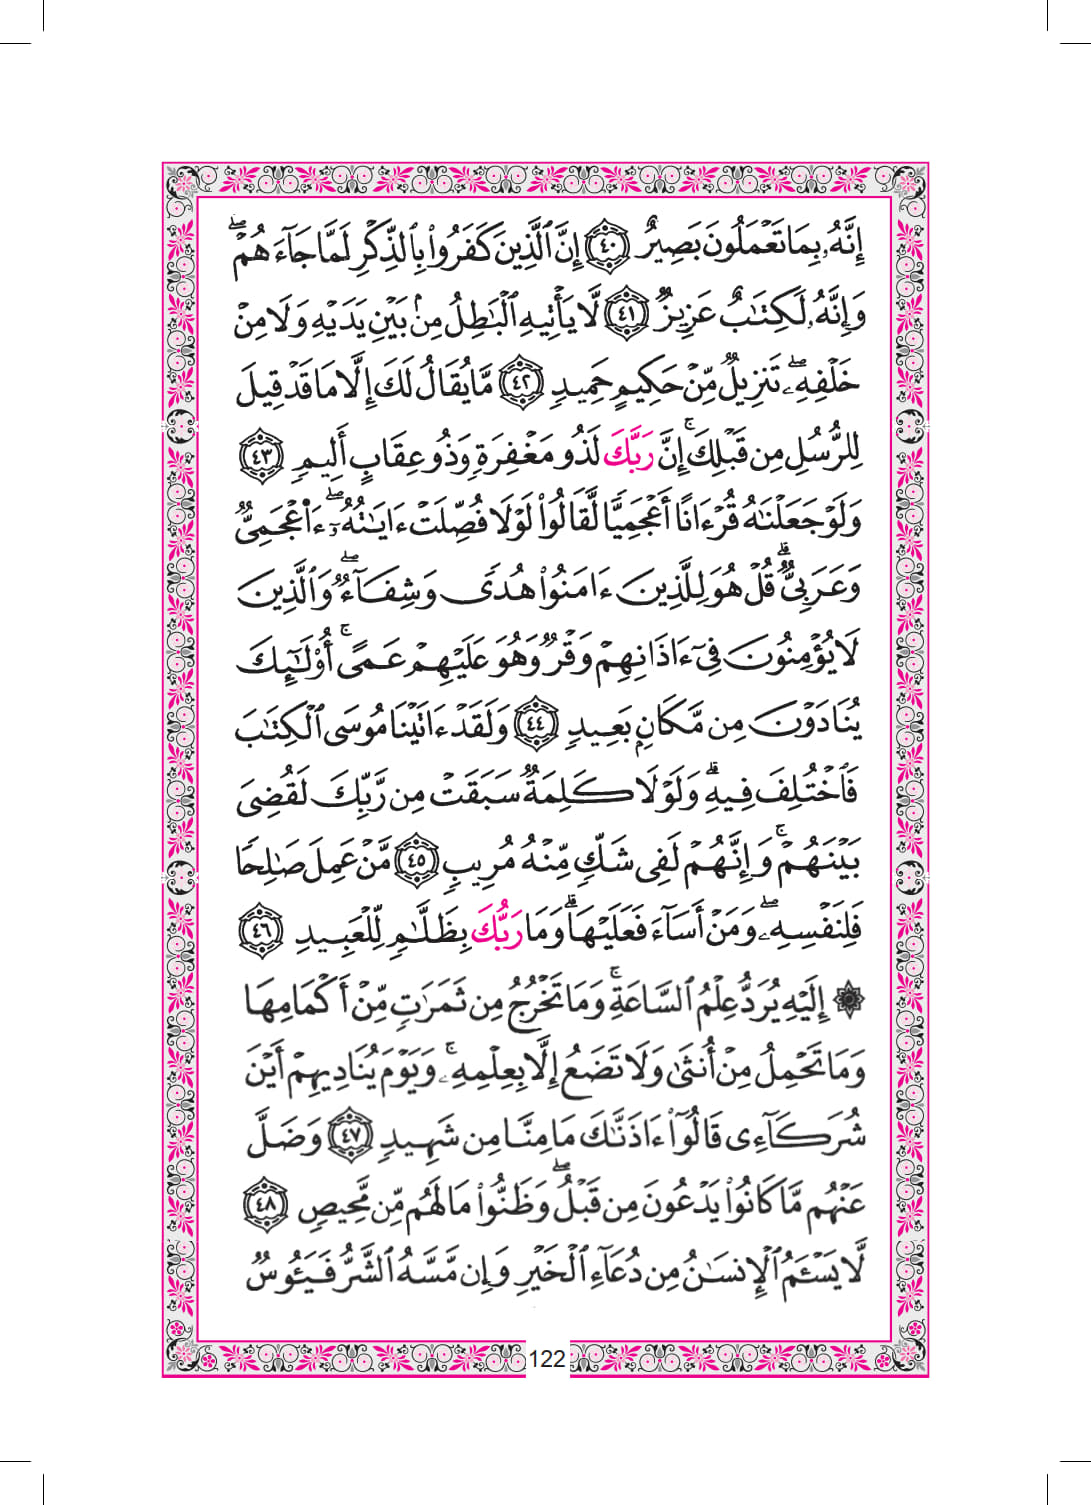 إِنَّهُۥ بِمَا تَعْمَلُونَ بَصِيرٌ ﴿٤٠﴾ إِنَّ ٱلَّذِينَ كَفَرُوا۟ بِٱلذِّكْرِ لَمَّا جَآءَهُمْ ۖ
وَإِنَّهُۥ لَكِتَٰبٌ عَزِيزٌ ﴿٤١﴾ لَّا يَأْتِيهِ ٱلْبَٰطِلُ مِنۢ بَيْنِ يَدَيْهِ وَلَا مِنْ
خَلْفِهِۦ ۖ تَنزِيلٌ مِّنْ حَكِيمٍ حَمِيدٍ ﴿٤٢﴾ مَّا يُقَالُ لَكَ إِلَّا مَا قَدْ قِيلَ
لِلرُّسُلِ مِن قَبْلِكَ ۚ إِنَّ رَبَّكَ لَذُو مَغْفِرَةٍ وَذُو عِقَابٍ أَلِيمٍ ﴿٤٣﴾
وَلَوْ جَعَلْنَٰهُ قُرْءَانًا أَعْجَمِيًّا لَّقَالُوا۟ لَوْلَا فُصِّلَتْ ءَايَٰتُهُۥٓ ۖ ءَا۬عْجَمِىٌّ
وَعَرَبِىٌّ ۗ قُلْ هُوَ لِلَّذِينَ ءَامَنُوا۟ هُدًى وَشِفَآءٌ ۖ وَٱلَّذِينَ
لَا يُؤْمِنُونَ فِىٓ ءَاذَانِهِمْ وَقْرٌ وَهُوَ عَلَيْهِمْ عَمًى ۚ أُو۟لَٰٓئِكَ
يُنَادَوْنَ مِن مَّكَانٍۭ بَعِيدٍ ﴿٤٤﴾ وَلَقَدْ ءَاتَيْنَا مُوسَى ٱلْكِتَٰبَ
فَٱخْتُلِفَ فِيهِ ۗ وَلَوْلَا كَلِمَةٌ سَبَقَتْ مِن رَّبِّكَ لَقُضِىَ
بَيْنَهُمْ ۚ وَإِنَّهُمْ لَفِى شَكٍّ مِّنْهُ مُرِيبٍ ﴿٤٥﴾ مَّنْ عَمِلَ صَٰلِحًا
فَلِنَفْسِهِۦ ۖ وَمَنْ أَسَآءَ فَعَلَيْهَا ۗ وَمَا رَبُّكَ بِظَلَّٰمٍ لِّلْعَبِيدِ ﴿٤٦﴾
۞ إِلَيْهِ يُرَدُّ عِلْمُ ٱلسَّاعَةِ ۚ وَمَا تَخْرُجُ مِن ثَمَرَٰتٍ مِّنْ أَكْمَامِهَا
وَمَا تَحْمِلُ مِنْ أُنثَىٰ وَلَا تَضَعُ إِلَّا بِعِلْمِهِۦ ۚ وَيَوْمَ يُنَادِيهِمْ أَيْنَ
شُرَكَآءِى قَالُوٓا۟ ءَاذَنَّٰكَ مَا مِنَّا مِن شَهِيدٍ ﴿٤٧﴾ وَضَلَّ
عَنْهُم مَّا كَانُوا۟ يَدْعُونَ مِن قَبْلُ ۖ وَظَنُّوا۟ مَا لَهُم مِّن مَّحِيصٍ ﴿٤٨﴾
لَّا يَسْـَٔمُ ٱلْإِنسَٰنُ مِن دُعَآءِ ٱلْخَيْرِ وَإِن مَّسَّهُ ٱلشَّرُّ فَيَـُٔوسٌ
122